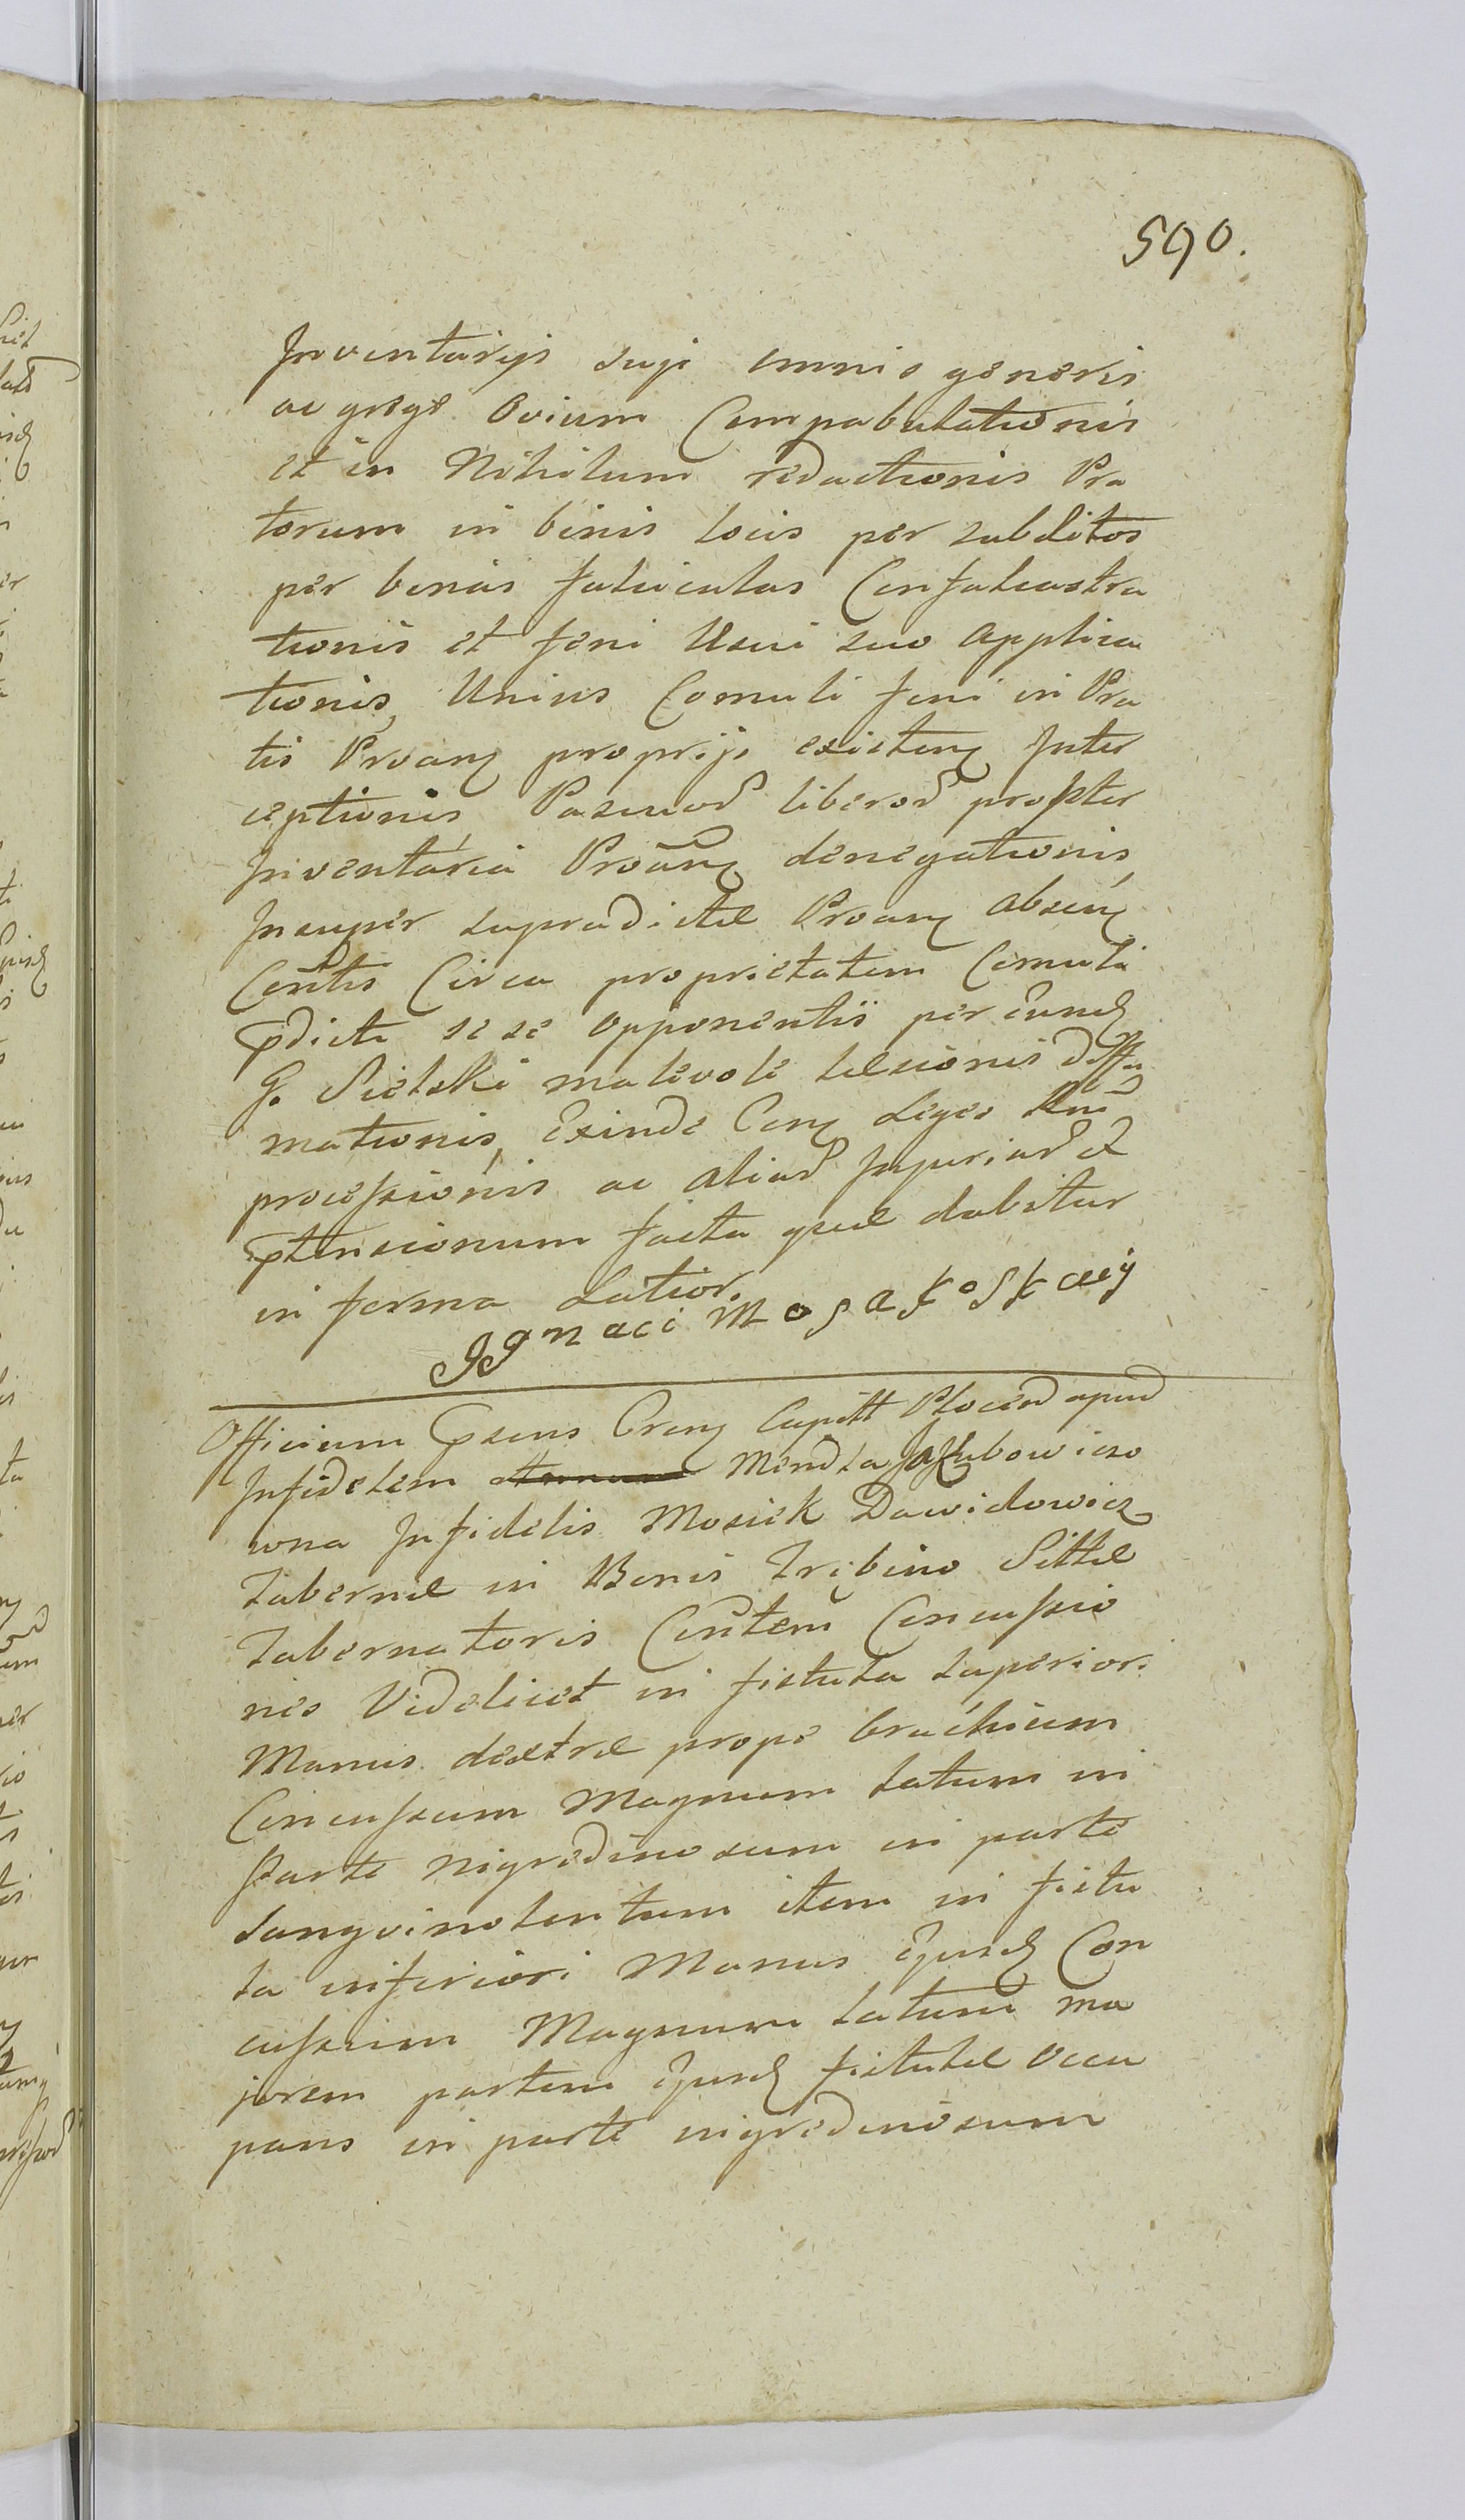 590.
Inventarijs suji omnis generis
ac grege Ovium Compabulationis
et in Nihilum redactionis Pra
torum in binis locis per subditos
per binas falviculas Confalcastra
tionis et feni Usui suo applica
tionis, Unius Comuli feni in Pra
tis Proang proprijs existeng Inter
ceptionis, Pascuor liberor propter
Inventaria Proang denegationis,
Insuper supradictæ Proang absen
Contis Circa proprietatem Comuli
pdicti se se opponentis per Eund
G. Sielski malevole læsionis diffa
mationis, Exinde Cong Leges
processionis ac aliar Injuriar et
ptensionum facta quæ dabitur
in forma Latior.
Jgnaci Mosakoskmj
Officium Psens Creng Capitt Plocen apud
Infidelem Mendla Jakubowiczo
wna Infidelis Mosiek Dawidowicz
Tabernæ in Bonis Trębino Sittæ
Tabernatoris Contem Concussio
nes Videlicet in fistula superiori
Manus dextræ prope brachium
Concussum Magnum latum in
parte nigredinosum in parte
sangvinolentum item in fistu
la inferiori Manus Ejusd Con
cussum Magnum latum ma
jorem partem Ejusd fistulæ occu
pans in parte nigredinosum